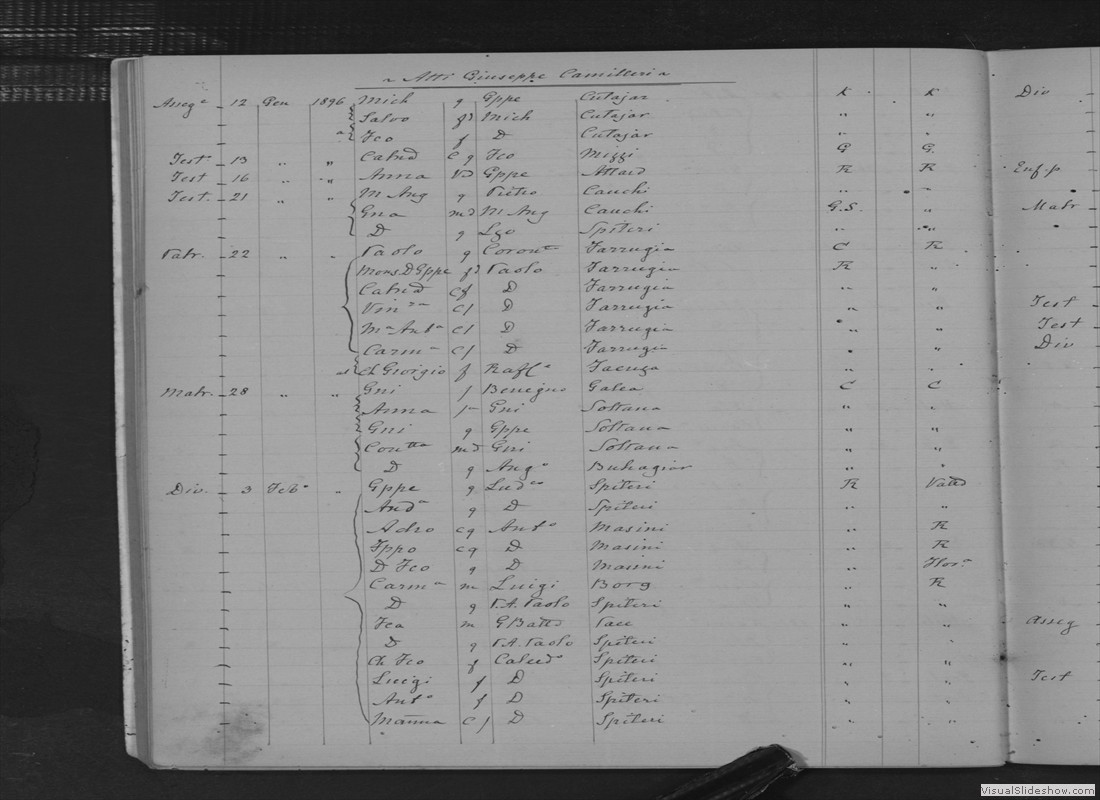 Atti Giuseppe Camilleri
Asseg.a 12 Gen 1896 Mich g Gppe Cutajar K K Div
Salvo Mich Cutajar " "
Fco f D Cutajar " "
Test.o 13 " " Calced c g Fco Mizzi G G.
Test 16 " " Anna Vd Gppe Attard R R Enf.p
Test. 21 " " M Ang g Pietro Cauchi " "
Gna md M Ang Cauchi G.S. " Matr
D g Lzo Spiteri " "
Matr. 22 " " Paolo g Coron.to Farrugia C R
Mons D Gppe Paolo Farrugia R "
c f D Farrugia " "
Vin.za c f D Farrugia " " Test
M.a Ant.a c f D Farrugia " " Test
Carm.a c f D Farrugia " " Div
Giorgio f Raff.e " "
Matr. 28 " " Gni f Benegno Galea C C
Anna Gni Soltana " "
Gni g Gppe Soltana " "
md Gni Soltana " "
D g Ang.o Buhagiar " "
Div. 3 Feb.o " Gppe g Lud.co Spiteri R
And.a g D Spiteri " "
c g Ant.o Masini " R
c g D Masini " R
D Fco g D "
Carm.a m Luigi Borg " R
D g P.A. Paolo Spiteri " "
Fca m " " Asseg
D g P.A. Paolo Spiteri " "
Ch Fco f Calced.o Spiteri " "
Luigi f D Spiteri " " Test
Ant.o f D Spiteri " "
c f D Spiteri " "
VisualSlideshow.com